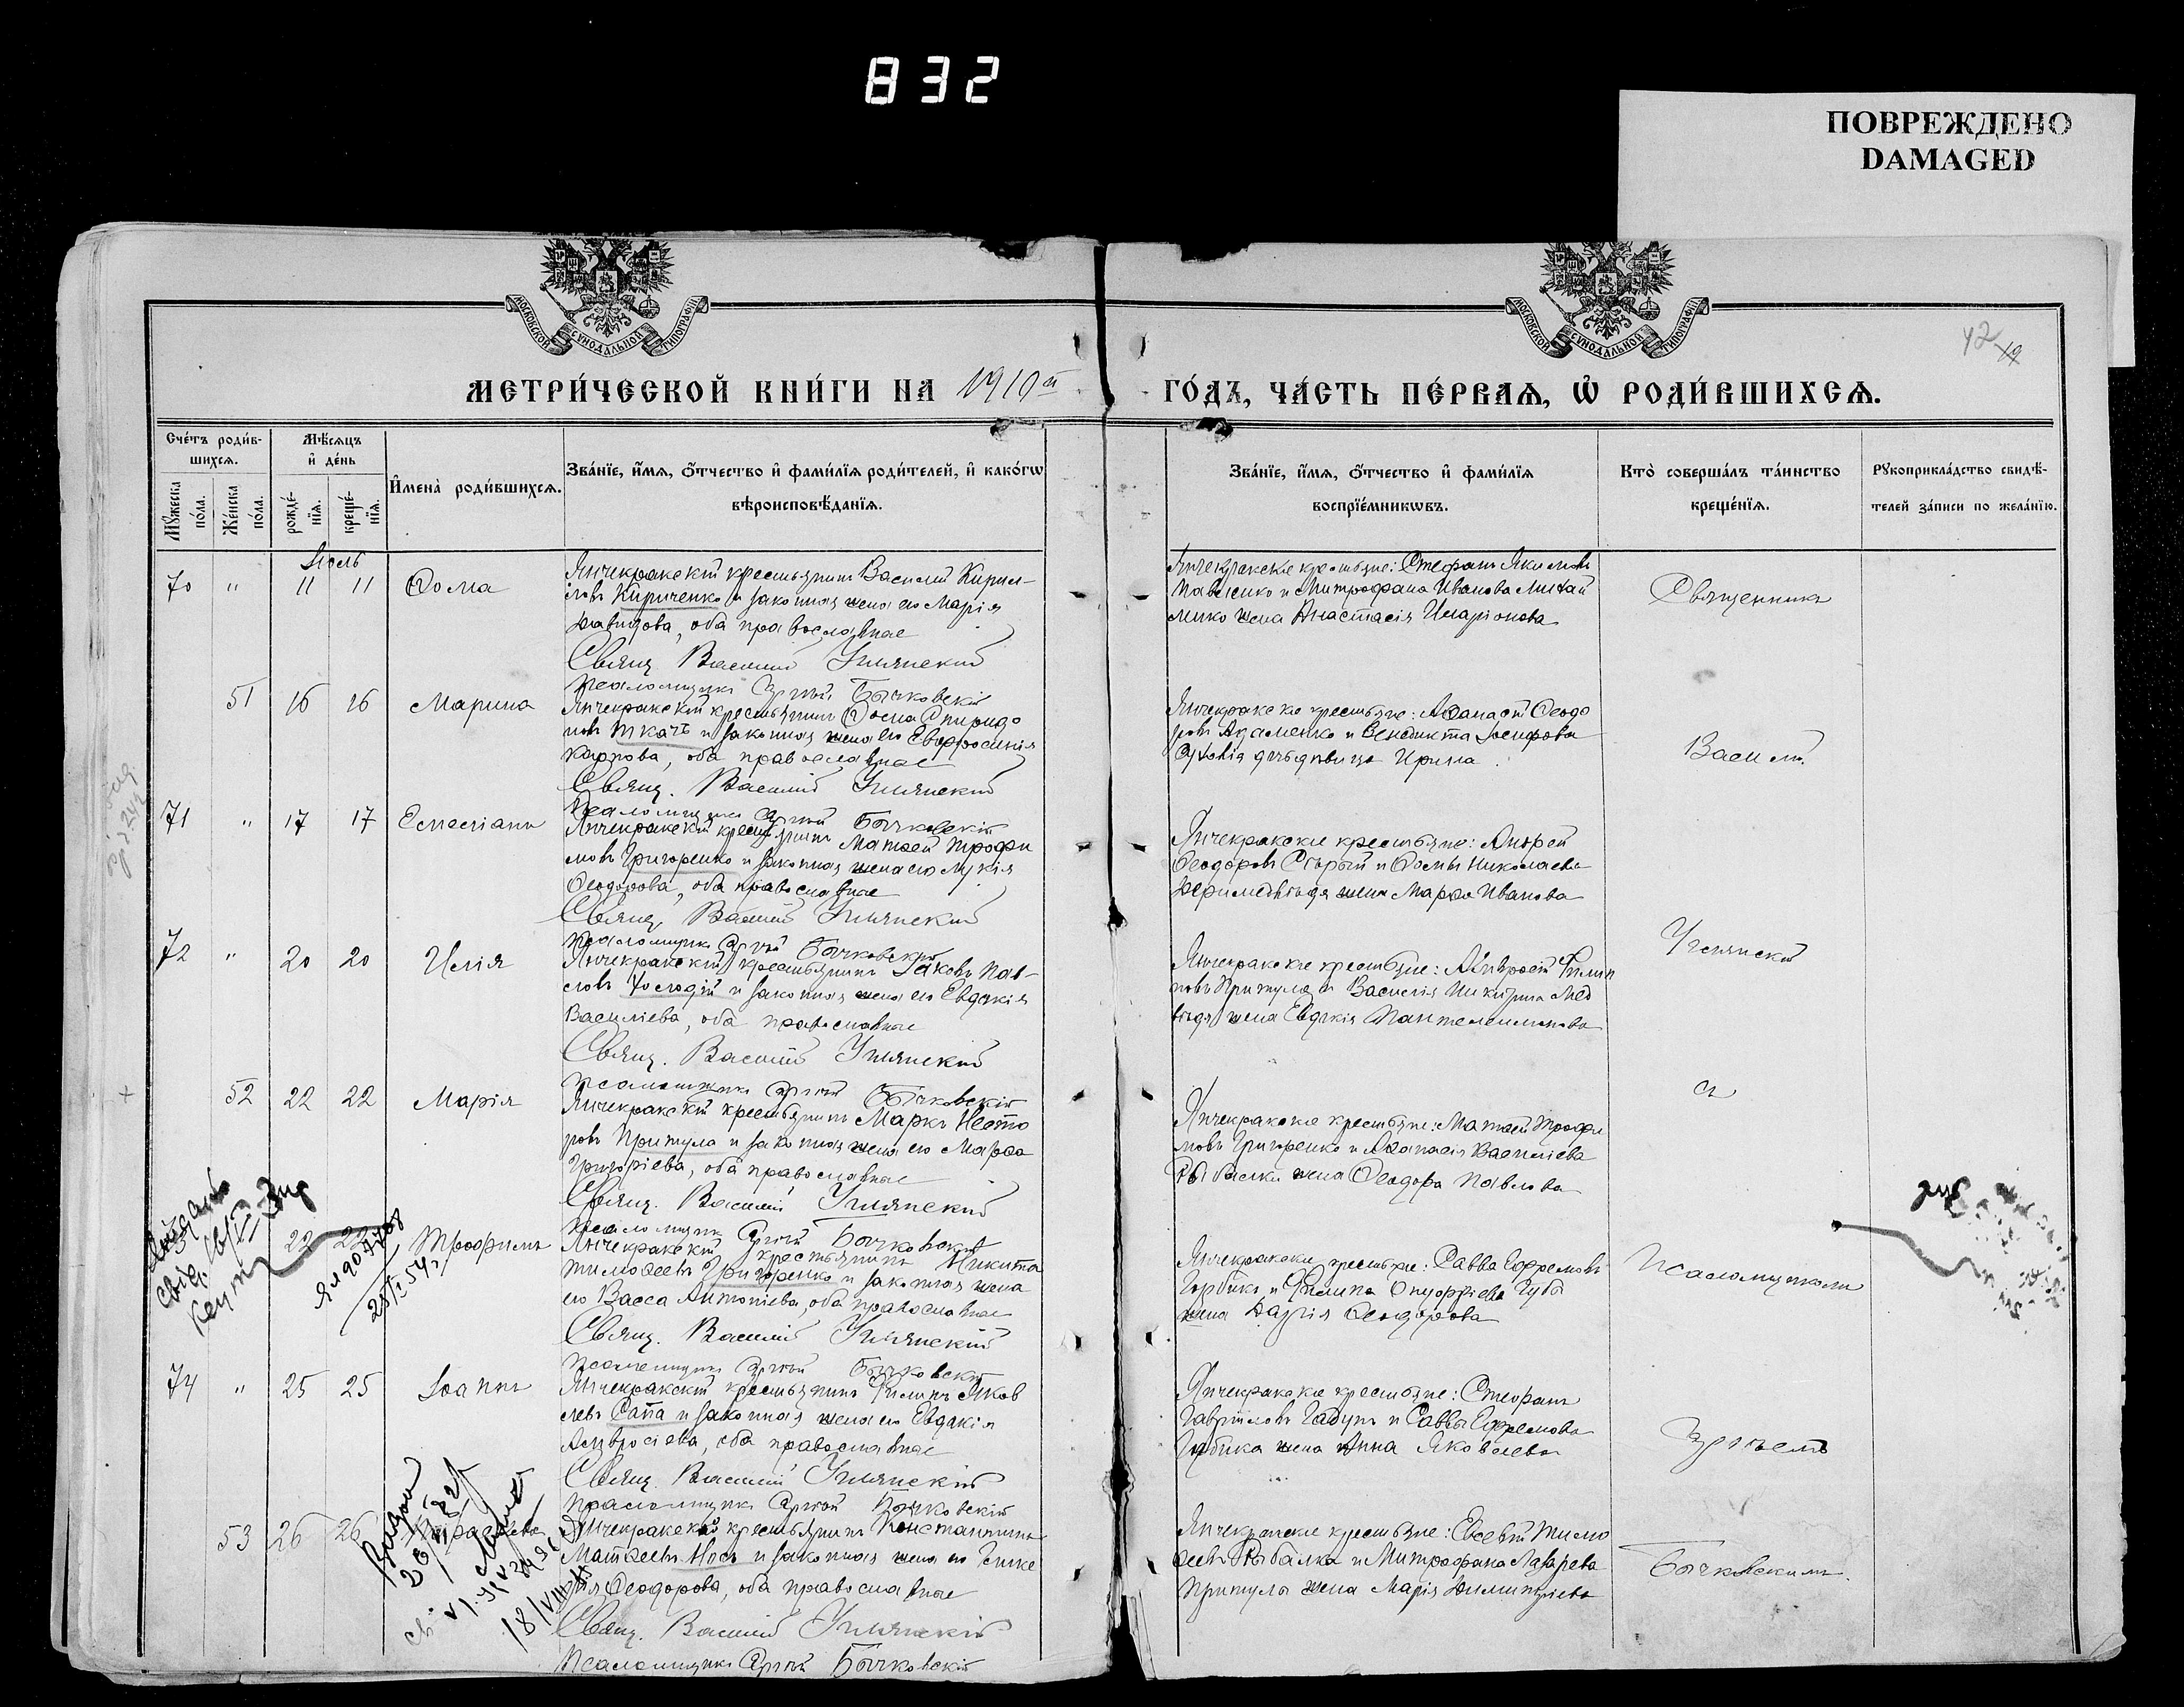 832
ПОВРЕЖДЕНО
DAMAGED
МОСКОВСКОЙ СѴНОДАЛЬНОЙ ТИПОГРАФІИ
МОСКОВСКОЙ СѴНОДАЛЬНОЙ ТИПОГРАФІИ
42
19
МЕТРИ́ЧЕСКОЙ КНИ́ГИ НА 1910й ГО́ДЪ, ЧА́СТЬ ПЕ́РВАѦ, Ѡ҆ РОДИ́ВШИХСѦ.
Сче́тъ роди́в-
шихсѧ.
Мꙋ́жеска по́ла.
Же́нска по́ла.
Мѣ́сѧцъ
и҆ де́нь
рожде́-
нїѧ.
креще́-
нїѧ.
И҆мена̀ роди́вшихсѧ.
Зва́нїе, и҆́мѧ, ѻ҆́тчество и҆ фами́лїѧ роди́телей, и҆ како́гѡ
вѣроисповѣ́данїѧ.
Зва́нїе, и҆́мѧ, ѻ҆́тчество и҆ фами́лїѧ
воспрїе́мникѡвъ.
Кто̀ соверша́лъ та́инство
креще́нїѧ.
Рꙋкоприкла́дство свидѣ́-
телей за́писи по жела́нїю.
Іюль
70 " 11 11 Ѳома
Янчекракскій крестьянинъ Василій Кирил-
ловъ Кириченко и законная жена его Марія
Давидова, оба православные
Свящ. Василій Ульянскій
Псаломщикъ Бычковскій
Янчекракскіе крестьяне: Стефанъ Якимовъ
Павленко и Митрофана Иванова Михай
ленко жена Анастасія Иларіонова
Священникъ
51 16 16 Марина
Янчекракскій крестьянинъ Ѳома Спиридо
новъ Ткачъ и законная жена его Евфросинія
Карпова, оба православные
Свящ. Василій Ульянскій
Псаломщикъ Бычковскій
Янчекракскіе крестьяне: Аѳанасій Ѳеодо
ровъ Адаменко и Венедикта Іосифова
дочь дѣвица Ирина
Василій
71 " 17 17 Емеліанъ
Янчекракскій крестьянинъ Матѳей Трофи
мовъ Григоренко и законная жена его Лукія
Ѳеодорова, оба православные
Свящ. Василій Ульянскій
Псаломщикъ Бычковскій
Янчекракскіе крестьяне: Андрей
Ѳеодоровъ Старый и Ѳомы Николаева
жена Марѳа Иванова
Ульянскій
72 " 20 20 Илія
Янчекракскій крестьянинъ Іаковъ Пав-
ловъ и законная жена его Евдокія
Василіева, оба православные
Свящ. Василій Ульянскій
Псаломщикъ Бычковскій
Янчекракскіе крестьяне: Амвросій Филип
повъ Притула и Василія Никитина Мед
вѣдя жена Евдокія Пантелеимонова
съ
52 22 22 Марія
Янчекракскій крестьянинъ Маркъ Несто
ровъ Притула и законная жена его Марѳа
Григоріева, оба православные
Свящ. Василій Ульянскій
Псаломщикъ Бычковскій
Янчекракскіе крестьяне: Матѳей Трофи
мовъ Григоренко и Аѳанасія Василіева
Рыбалки жена Ѳеодора Павлова
22 22 Трофимъ
Янчекракскій крестьянинъ Никита
Тимоѳеевъ Григоренко и законная жена
его Васса Антоніева, оба православные
Свящ. Василій Ульянскій
Псаломщикъ Бычковскій
Янчекракскіе крестьяне: Савва Ефремовъ
Гарбика и Филипа Онуфріева Губы
жена Дарія Ѳеодорова
Псаломщикомъ
74 " 25 25 Іоаннъ
Янчекракскій крестьянинъ Филипъ Яков
левъ Сапа и законная жена его Евдокія
Амвросіева, оба православные
Свящ. Василій Ульянскій
Псаломщикъ Бычковскій
Янчекракскіе крестьяне: Стефанъ
Гавріиловъ Габунъ и Саввы Ефремова
Гарбика жена Анна Яковлева
53 26 26
Янчекракскій крестьянинъ Константинъ
Матѳеевъ Носъ и законная жена его Глике
рія Ѳеодорова, оба православные
Свящ. Василій Ульянскій
Псаломщикъ Бычковскій
Янчекракскіе крестьяне: Евсевій Тимо
ѳеевъ Рыбалка и Митрофана Лазарева
Притулы жена Марія Димитріева
Бычковскимъ.